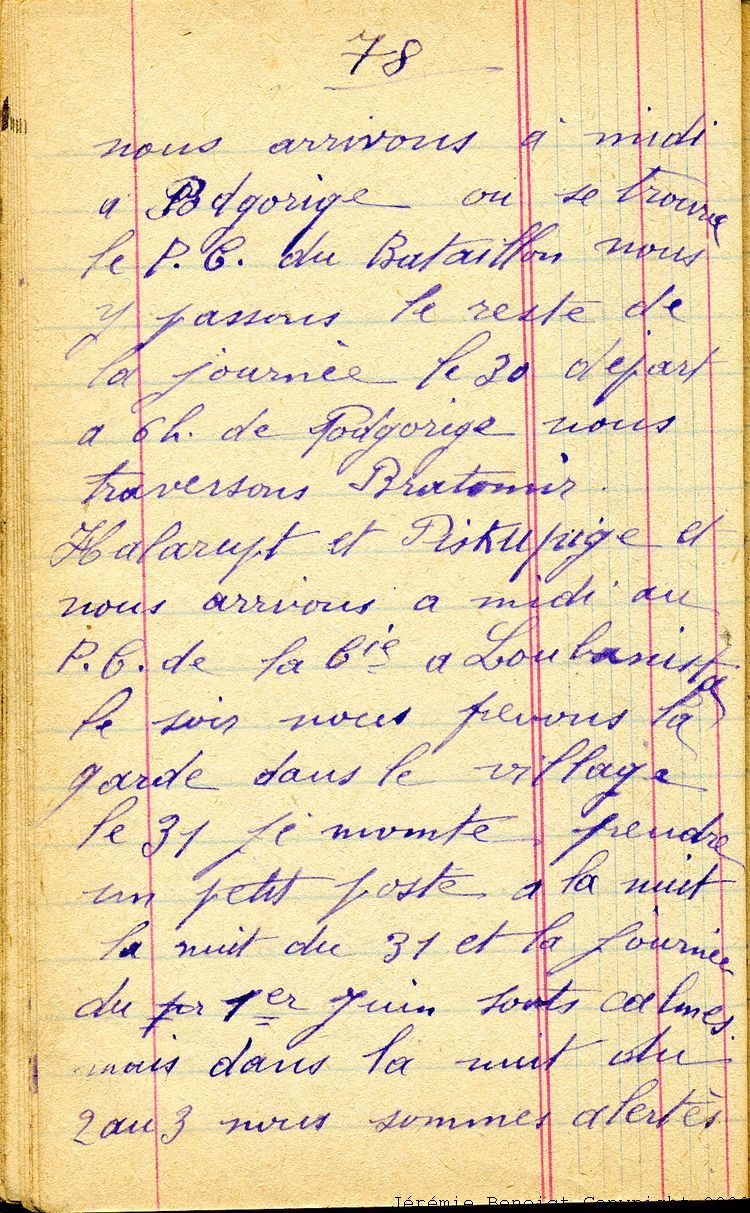 78
nous arrivons a midi
a Podgorige ou se trouve
le P.C. du Bataillon nous
y passons le reste de
la journée le 30 départ
a 6h. de Podgorige nous
traversons Bratomir.
Halarupt et Piskupige et
nous arrivons a midi au
P.C. de la Cie a Loubanista
le soir nous prenons la
garde dans le village
le 31 je monte prendre
un petit poste a la nuit
la nuit du 31 et la journée
du 1er Juin sonts calmes
mais dans la nuit du
2 au 3 nous sommes alertés
Jérémie Benoist Copyright